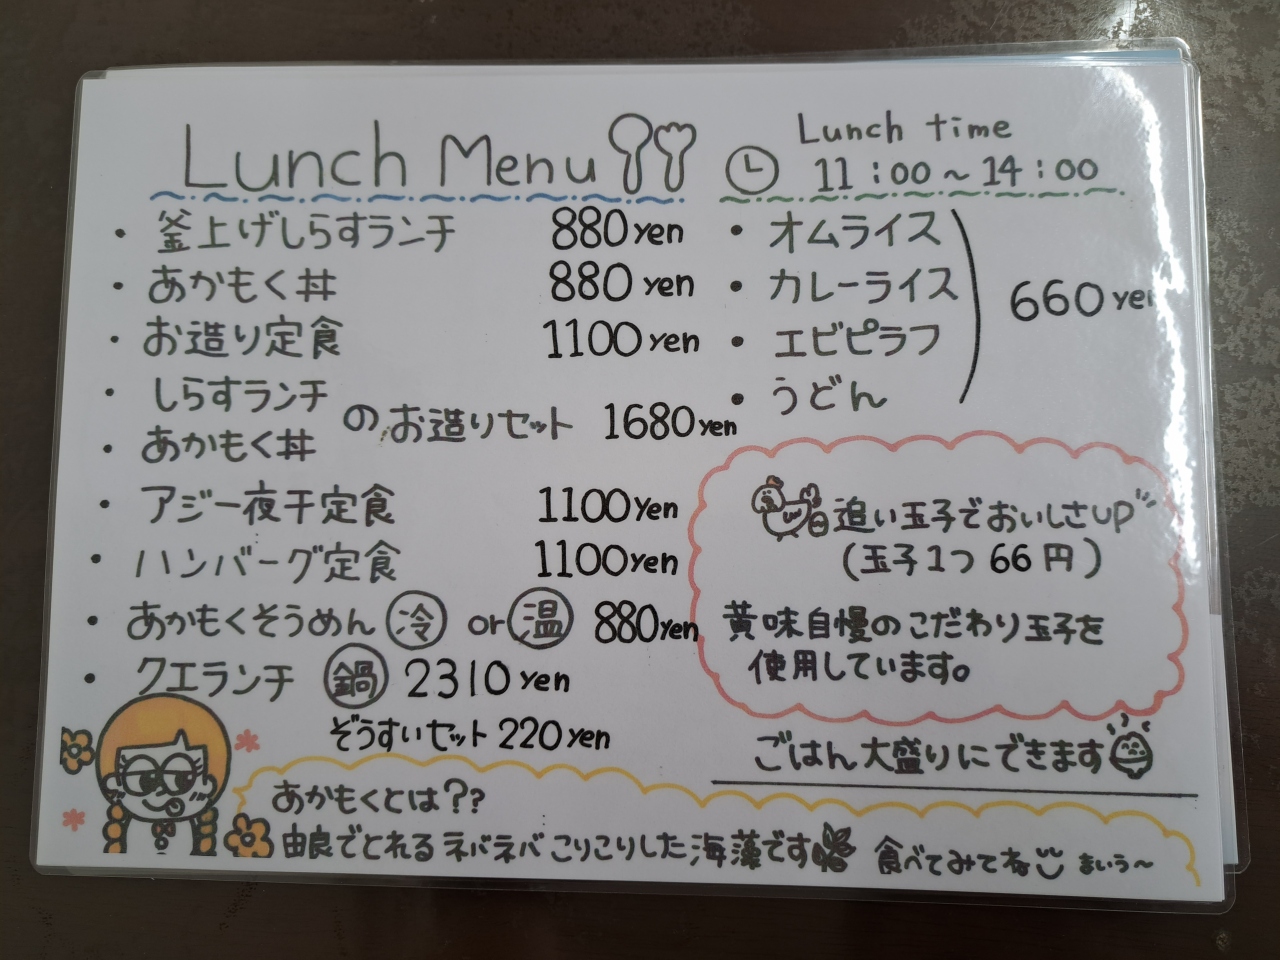 Lunch Menu
・釜上げしらすランチ 880yen
・あかもく丼 880yen
・お造り定食 1100yen
・しらすランチ
・あかもく丼
のお造りセット 1680yen
・アジ一夜干定食 1100yen
・ハンバーグ定食 1100yen
・あかもくそうめん 冷 or 温 880yen
・クエランチ 鍋 2310yen
ぞうすいセット 220yen
Lunch time
11:00~14:00
・オムライス
・カレーライス
・エビピラフ
・うどん
660yen
追い玉子でおいしさUP
(玉子1つ66円)
黄味自慢のこだわり玉子を
使用しています。
ごはん大盛りにできます
あかもくとは??
由良でとれるネバネバこりこりした海藻です 食べてみてね まいう~